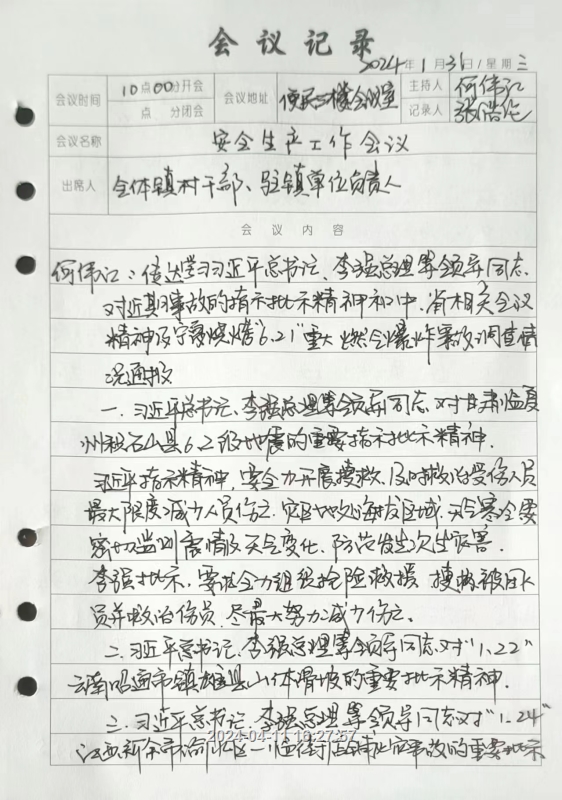 会议记录
2024年1月31日/星期三
会议时间 10点00分开会 会议地址 便民三楼会议室 主持人 何伟江
点 分闭会 记录人 张浩
会议名称 安全生产工作会议
出席人 全体镇村干部、驻镇单位负责人
会议内容
何伟江：传达学习习近平总书记、李强总理等领导同志
对近期事故的指示批示精神和中、省相关会议
精神及宁夏烧烤"6.21"重大燃气爆炸事故调查情
况通报
一.习近平总书记、李强总理等领导同志对甘肃临夏
州积石山县6.2级地震的重要指示批示精神.
习近平指示精神,要全力开展搜救,及时救治受伤人员
最大限度减少人员伤亡.灾区地处海拔区域,天气寒冷要
密切监测震情及天气变化、防范发生次生灾害.
李强批示,要求全力组织抢险救援 搜救被困人
员并救治伤员,尽最大努力减少伤亡.
二.习近平总书记、李强总理等领导同志对"1.22"
云南昭通市镇雄县山体滑坡的重要批示精神.
三.习近平总书记、李强总理等领导同志对"1.24"
江西新余市渝水区一临街店铺火灾事故的重要批示
2024-04-11 16:27:57